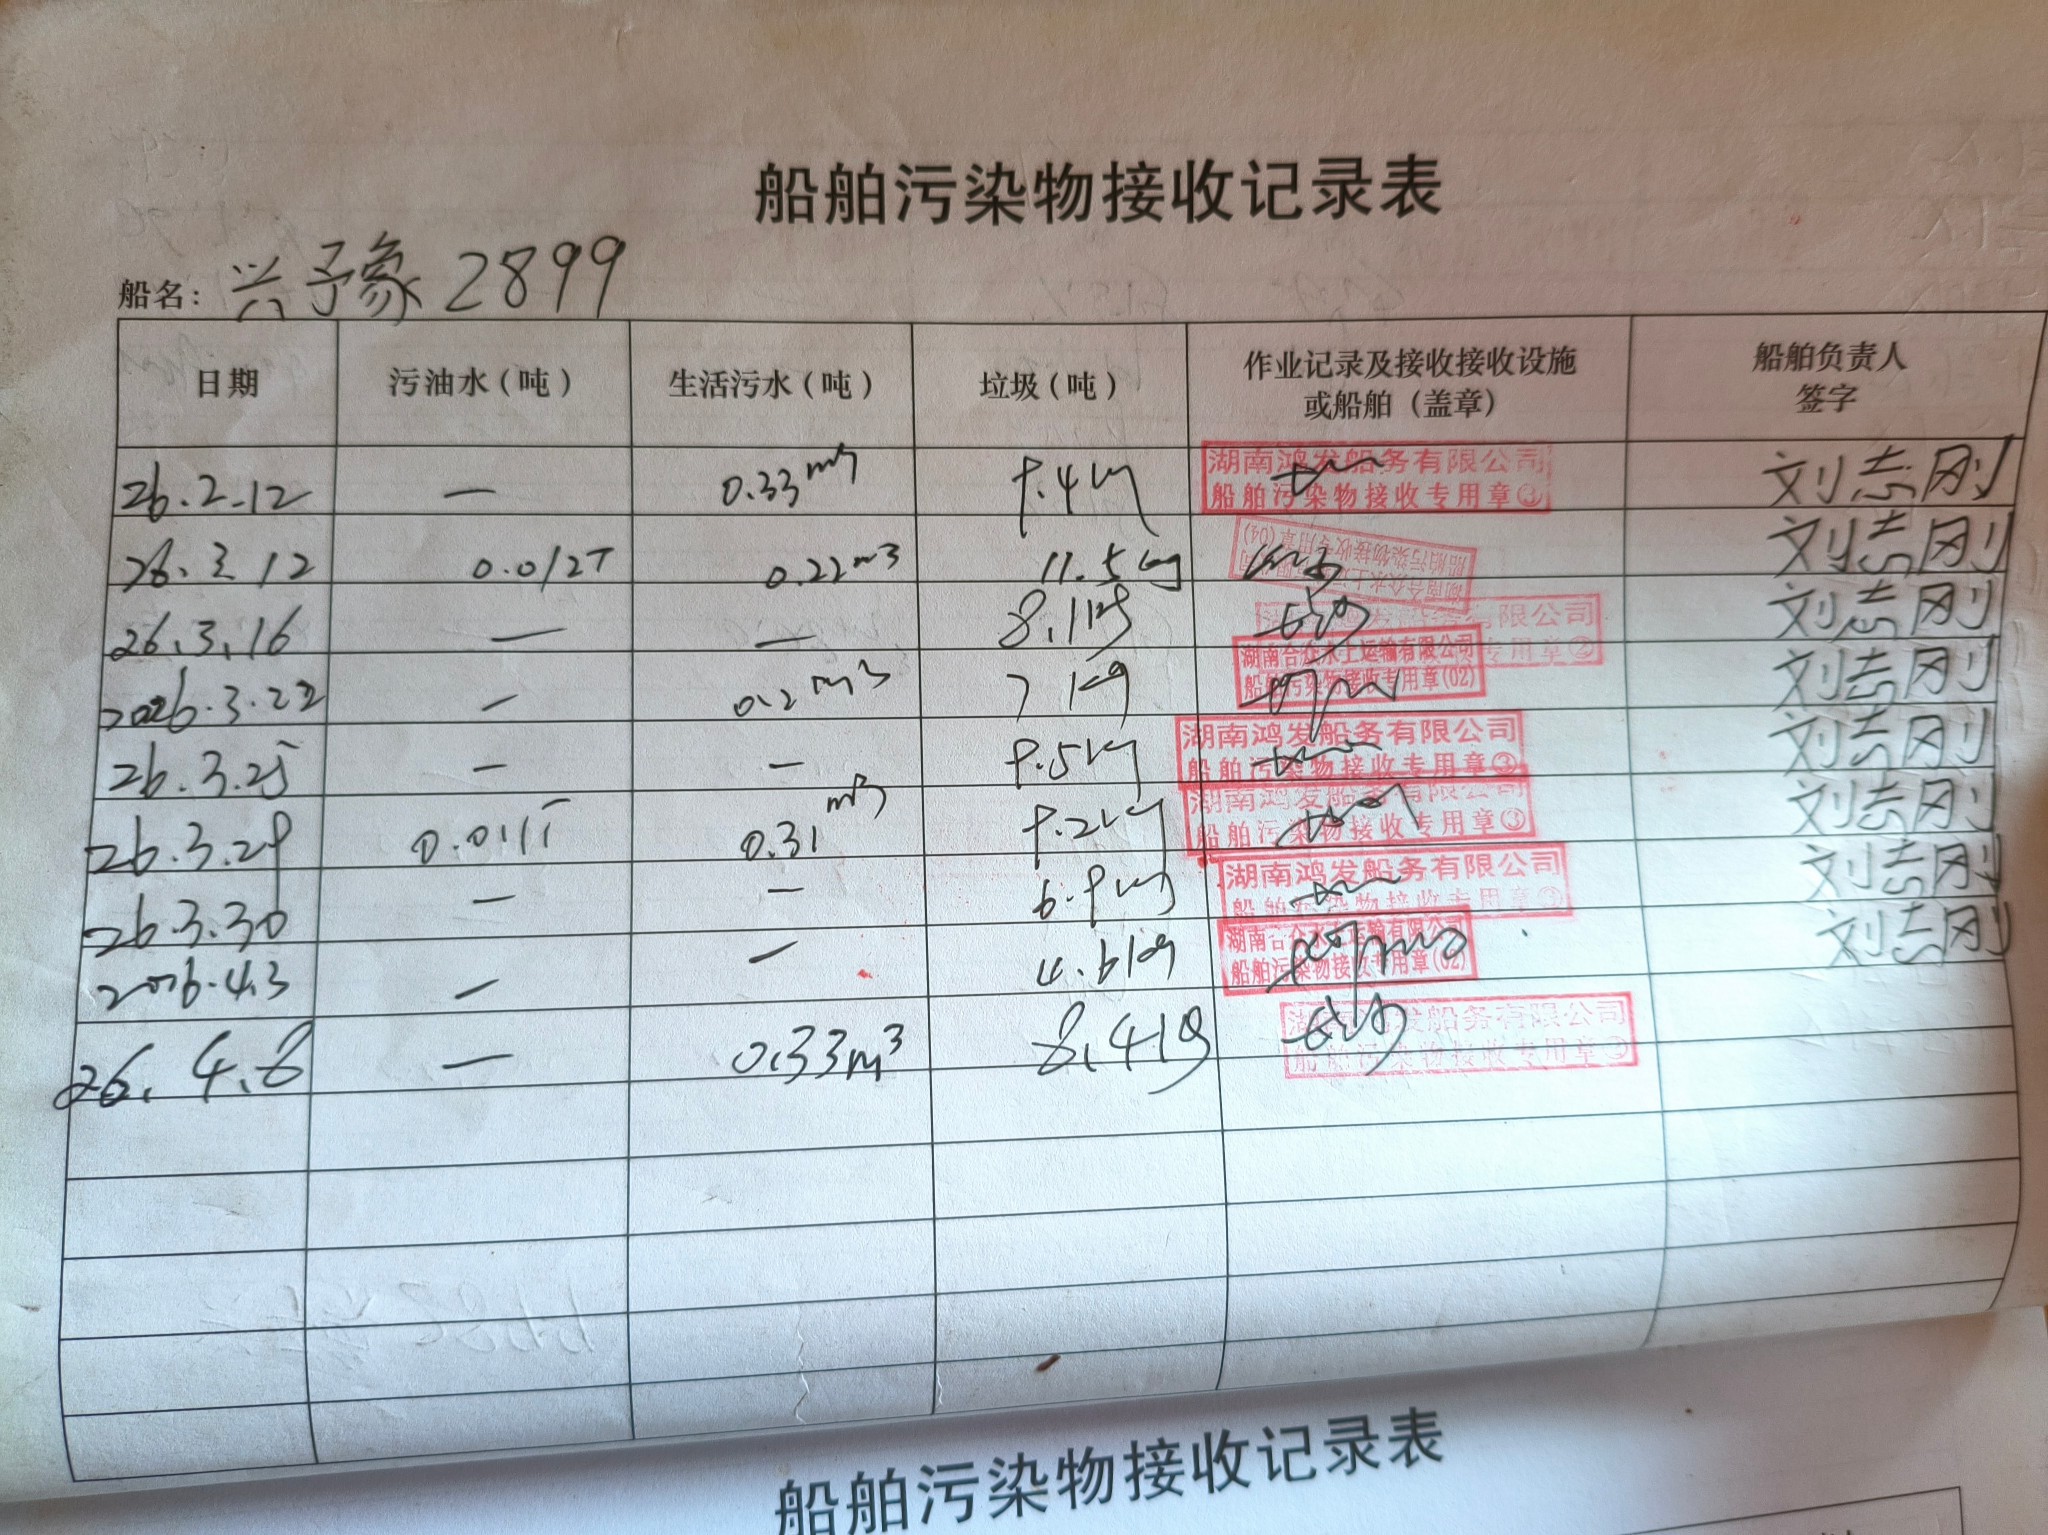 船舶污染物接收记录表
船名：兴予象2899
日期 污油水（吨） 生活污水（吨） 垃圾（吨） 作业记录及接收接收设施或船舶（盖章） 船舶负责人签字
26.2.12 — 0.33m3 9.4kg 湖南鸿发船务有限公司 船舶污染物接收专用章③ 刘志刚
26.3.12 0.012T 0.22m3 11.5kg 湖南合众水上运输有限公司 船舶污染物接收专用章(04) 刘志刚
26.3.16 — — 8.1kg 湖南鸿发船务有限公司 船舶污染物接收专用章② 刘志刚
2026.3.22 — 0.2m3 7kg 湖南合众水上运输有限公司 船舶污染物接收专用章(02) 刘志刚
26.3.25 — — 9.5kg 湖南鸿发船务有限公司 船舶污染物接收专用章③ 刘志刚
26.3.29 0.011T 0.31m3 9.2kg 湖南鸿发船务有限公司 船舶污染物接收专用章③ 刘志刚
26.3.30 — — 6.9kg 湖南鸿发船务有限公司 船舶污染物接收专用章 刘志刚
2026.4.3 — — 4.6kg 湖南合众水上运输有限公司 船舶污染物接收专用章(02) 刘志刚
26.4.8 — 0.33m3 8.4kg 湖南鸿发船务有限公司 船舶污染物接收专用章
船舶污染物接收记录表